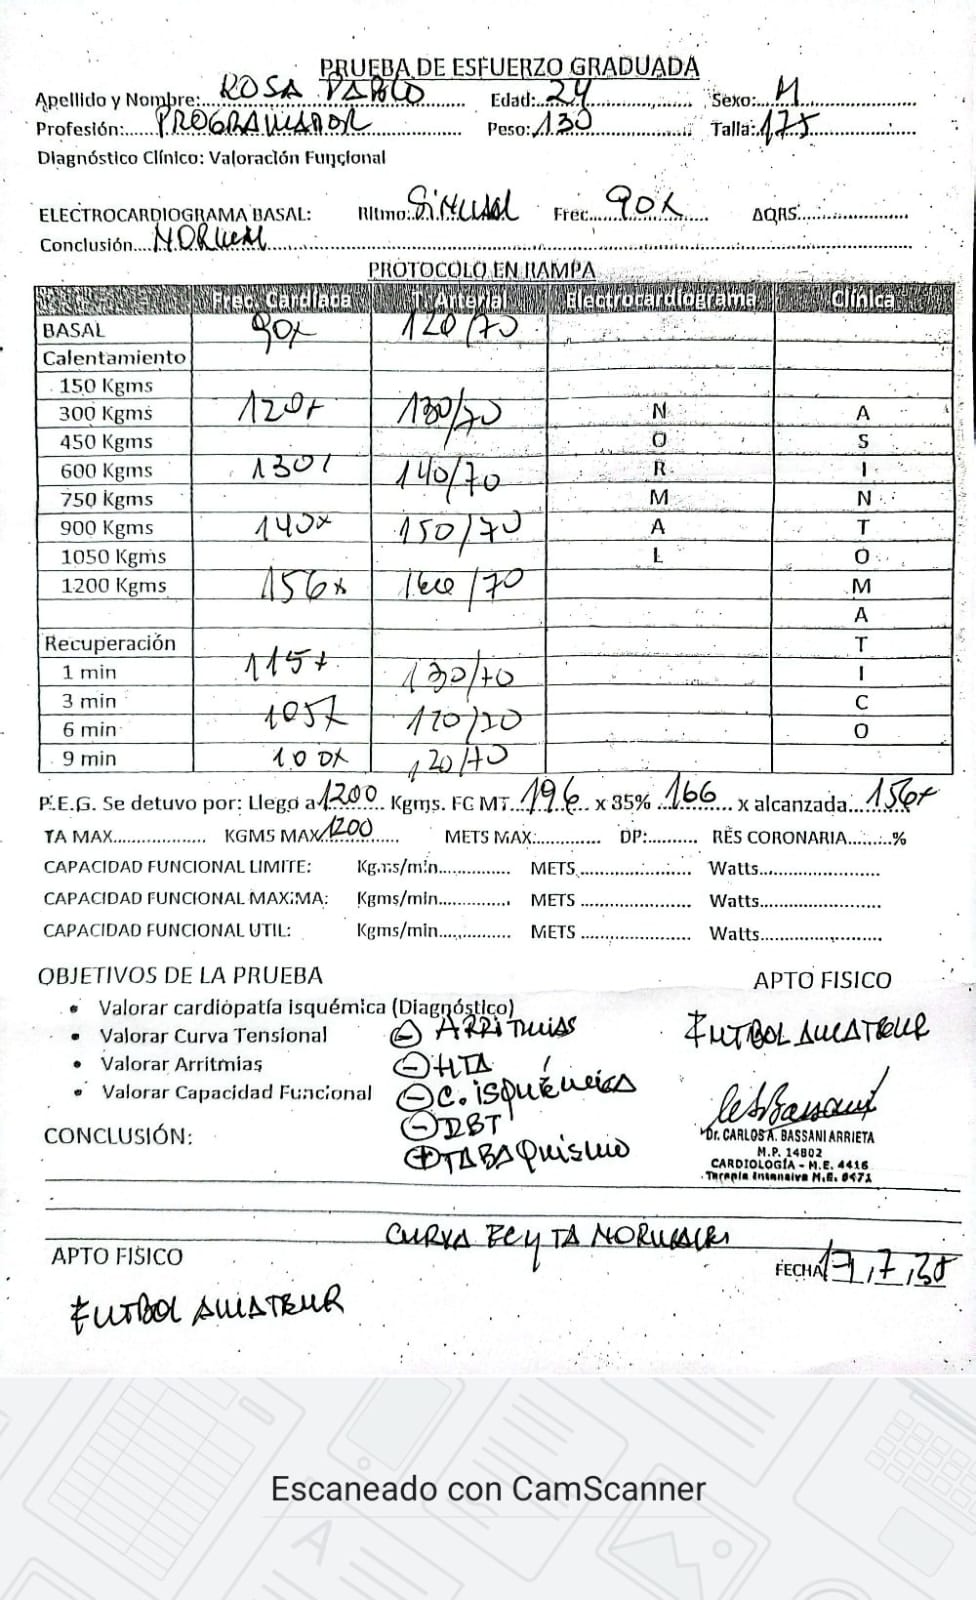 PRUEBA DE ESFUERZO GRADUADA
Apellido y Nombre: ROSA PABLO Edad: 24 Sexo: M
Profesión: PROGRAMADOR Peso: 130 Talla: 175
Diagnóstico Clínico: Valoración Funcional
ELECTROCARDIOGRAMA BASAL: Ritmo: SINUSAL Frec. 90x AQRS
Conclusión NORMAL
PROTOCOLO EN RAMPA
Frec. Cardíaca T. Arterial Electrocardiograma Clínica
BASAL 90x 120/70
Calentamiento
150 Kgms
300 Kgms 120x 130/70 N A
450 Kgms O S
600 Kgms 130x 140/70 R I
750 Kgms M N
900 Kgms 140x 150/70 A T
1050 Kgms L O
1200 Kgms 156x 160/70 M
A
Recuperación T
1 min 115x 130/70 I
3 min C
6 min 105x 120/70 O
9 min 100x 120/70
P.E.G. Se detuvo por: Llego a 1200 Kgms. FC MT. 196 x 85% 166 x alcanzada 156x
TA MAX KGMS MAX 1200 METS MAX: DP: RES CORONARIA %
CAPACIDAD FUNCIONAL LIMITE: Kgms/min METS Watts
CAPACIDAD FUNCIONAL MAXIMA: Kgms/min METS Watts
CAPACIDAD FUNCIONAL UTIL: Kgms/min METS Watts
OBJETIVOS DE LA PRUEBA APTO FISICO
• Valorar cardiopatía isquémica (Diagnóstico)
• Valorar Curva Tensional ⊖ ARRITMIAS FUTBOL AMATEUR
• Valorar Arritmias ⊖ HTA
• Valorar Capacidad Funcional ⊖ C. ISQUÉMICA
⊖ DBT
CONCLUSIÓN: ⊕ TABAQUISMO
Dr. CARLOS A. BASSANI ARRIETA
M.P. 14802
CARDIOLOGÍA - M.E. 4416
Terapia Intensiva M.E. 6471
CURVA FC y TA NORMALES
APTO FISICO FECHA 17,7,
FUTBOL AMATEUR
Escaneado con CamScanner